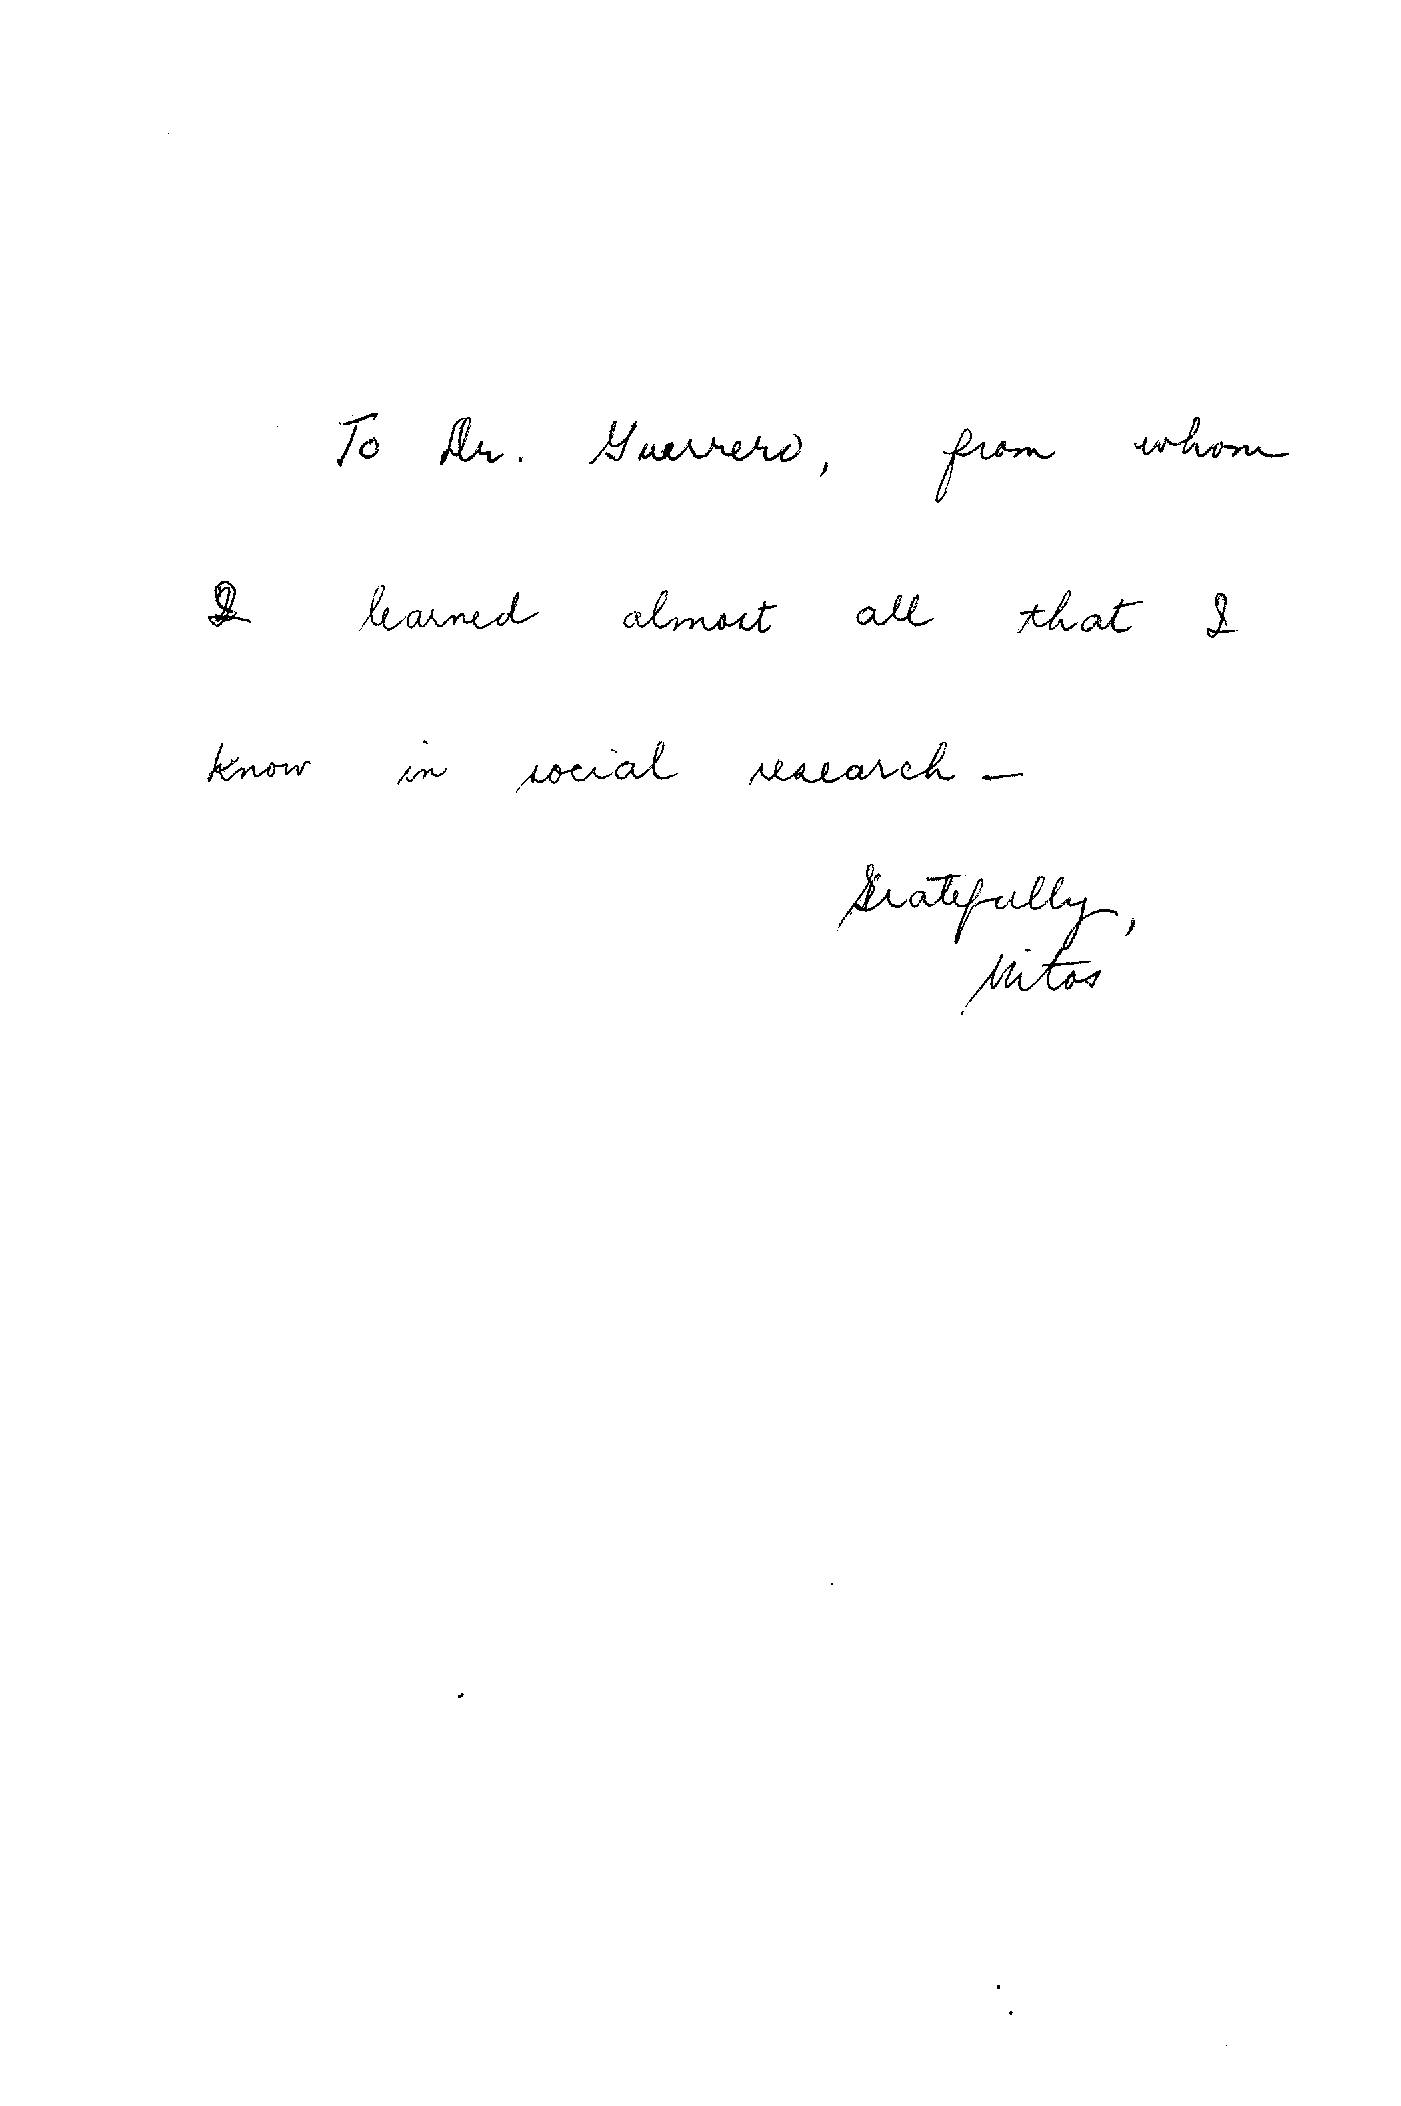 To Dr. Guerrero, from whom
I learned almost all that I
know in social research —
Gratefully,
Mitos